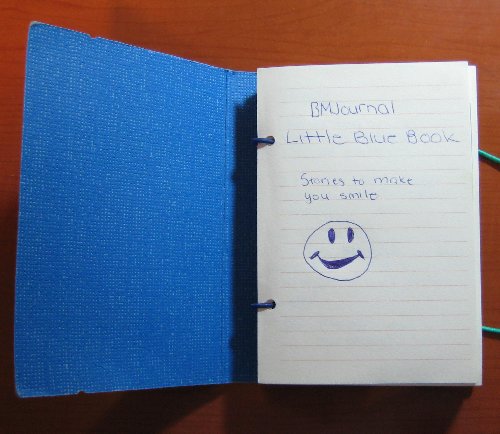 BMJournal
Little Blue Book
Stories to make
you smile